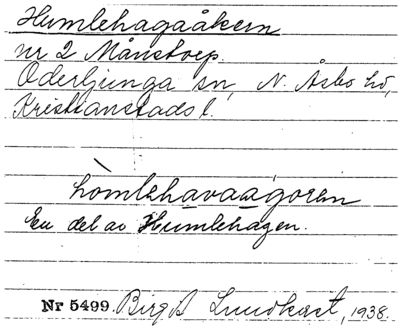 Humlehagaåkern
nr 2 Månstorp.
Oderljunga sn, N. Åsbo hd,
Kristianstads l.
hòmlehavaagoren
En del av Humlehagen.
Nr 5499. Birgit Lundkvist, 1938.